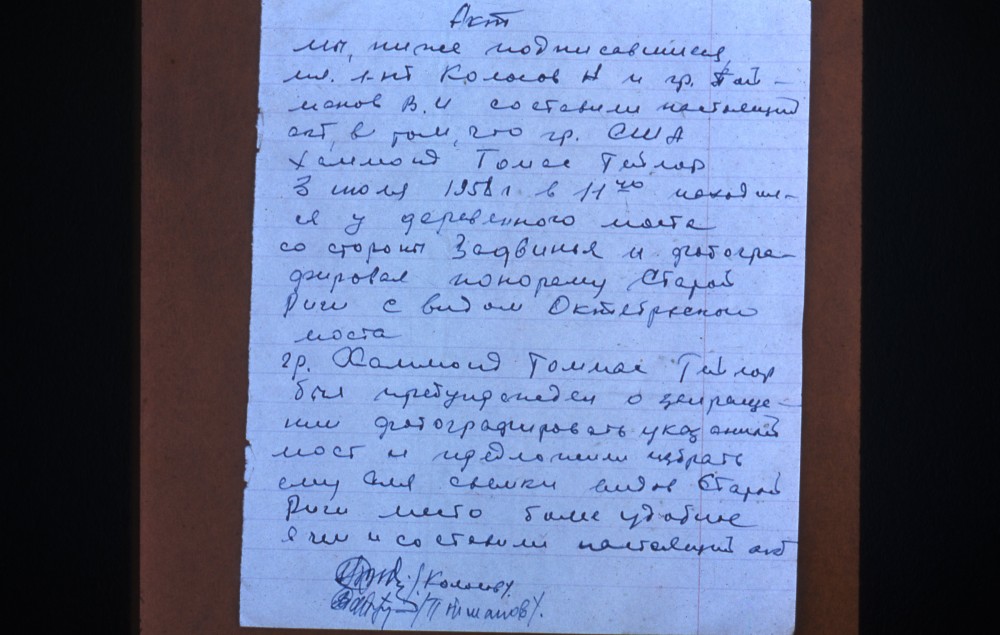 Акт
мы, ниже подписавшиеся,
мл. л-нт Колосов Н и гр. Пой-
манов В. И составили настоящий
акт, в том, что гр. США
Хаммонд Томас Тейлор
3 июля 1958 г. в 11 40 находил-
ся у деревянного моста
со стороны Задвинья и фотогра-
фировал понораму Старой
Риги с видом Октябрьского
моста
гр. Хаммонд Томмас Тейлор
был предупрежден о запреще-
нии фотографировать указанный
мост и предложили избрать
ему для съемки видов Старой
Риги место более удобное
о чем и составили настоящий акт
/Колосов/.
/Пойманов/.